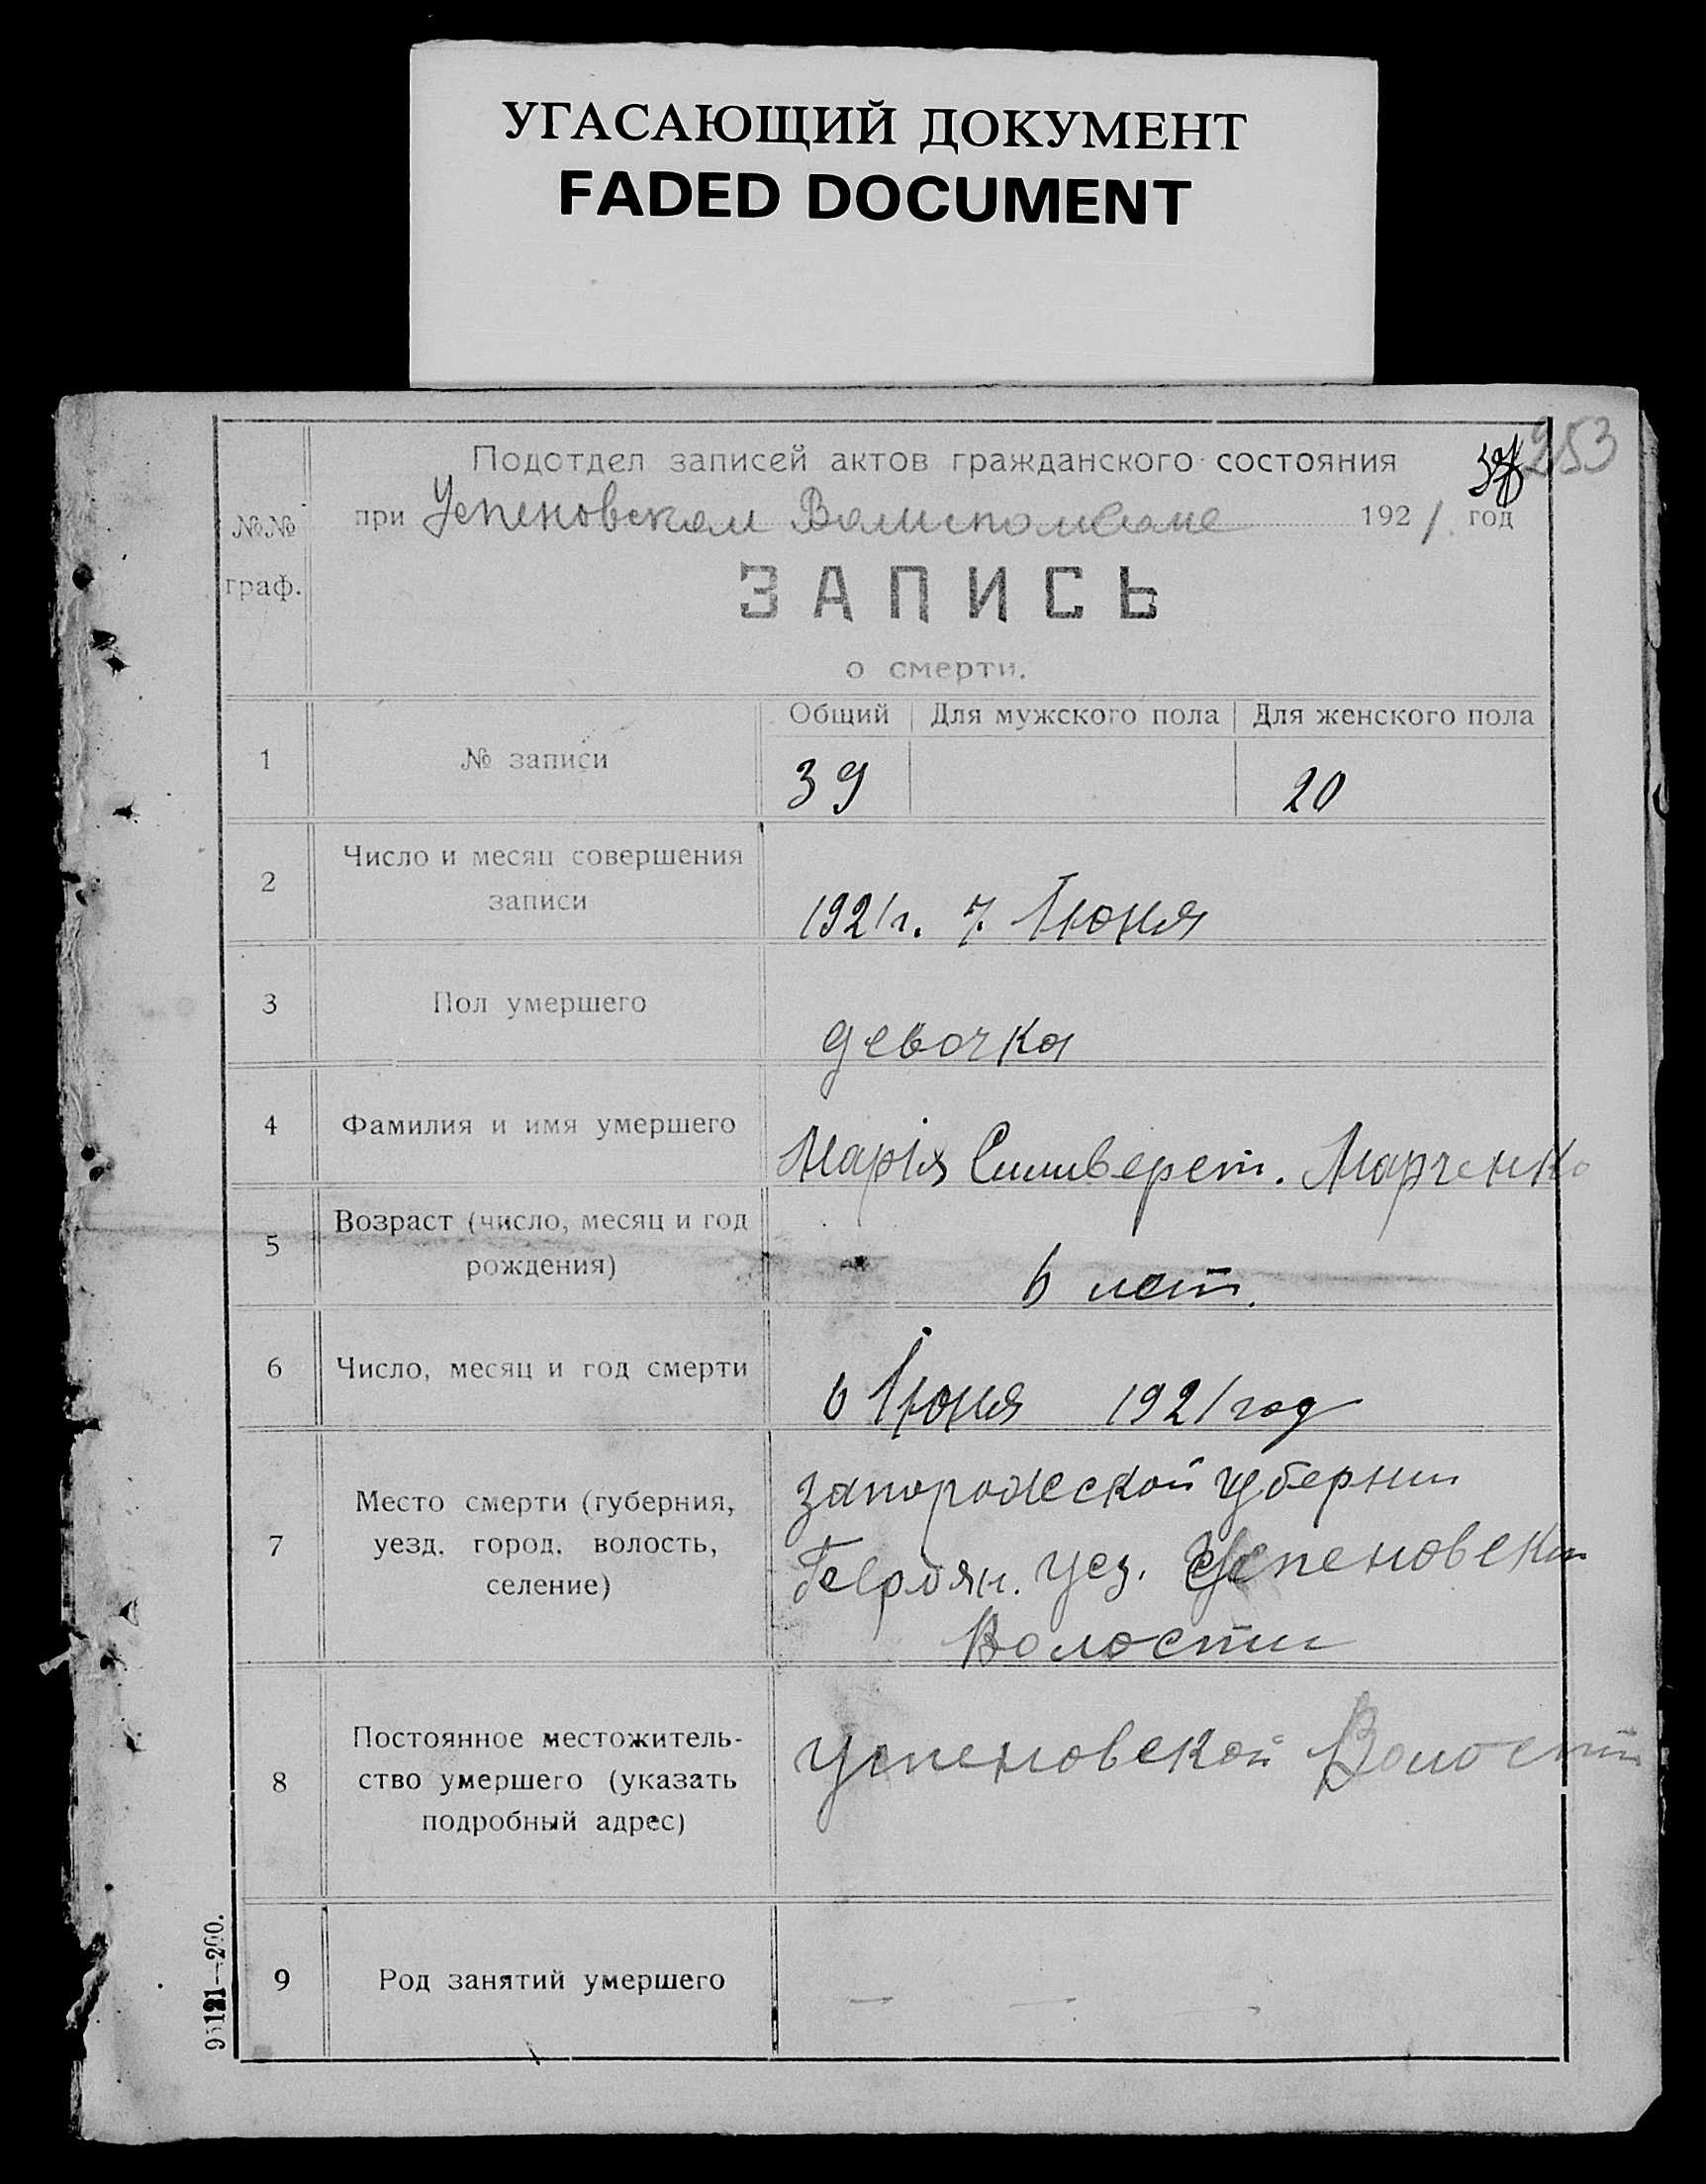 УГАСАЮЩИЙ ДОКУМЕНТ
FADED DOCUMENT
253
Подотдел записей актов гражданского состояния
№№ граф.
при Успеновском Волисполкоме 1921 год
ЗАПИСЬ
о смерти.
Общий Для мужского пола Для женского пола
1 № записи 39 20
2 Число и месяц совершения
записи 1921 г. 7. Іюня
3 Пол умершего девочка
4 Фамилия и имя умершего Марія Сильверст. Марченко
5 Возраст (число, месяц и год
рождения) 6 лет.
6 Число, месяц и год смерти 6 Іюня 1921 год
7 Место смерти (губерния,
уезд, город, волость,
селение)
Запорожеской губернии
Бердян. уез. Успеновской
Волости
8 Постоянное местожитель-
ство умершего (указать
подробный адрес)
Успеновской Волости
9 Род занятий умершего — — —